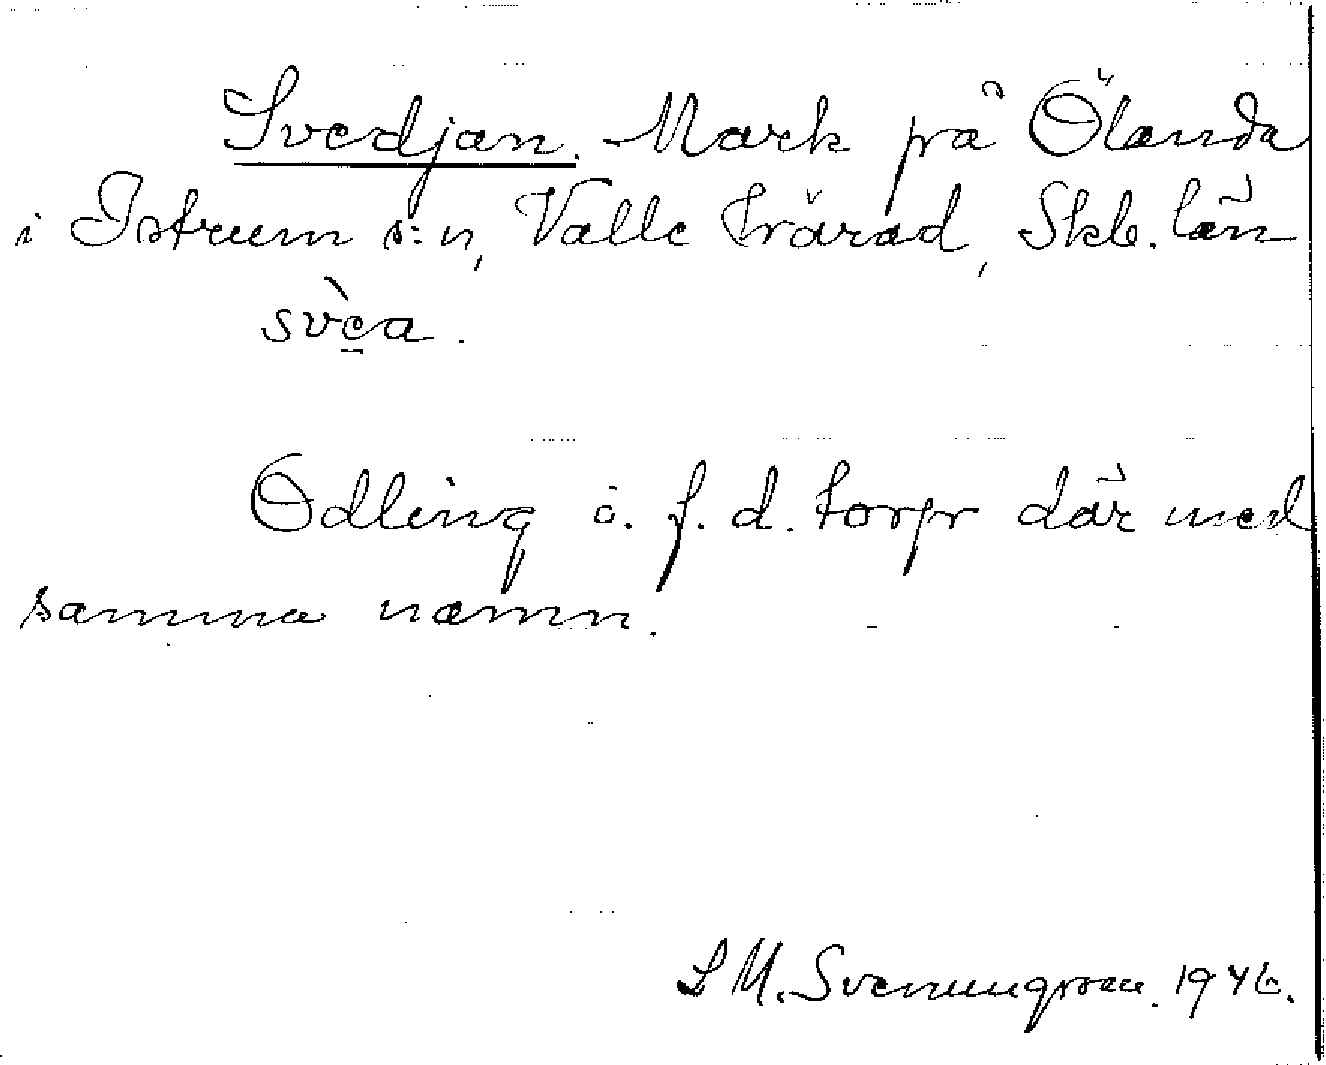 Svedjan. Mark på Ölanda
i Istrum s:n, Valle härad, Skb. län
svèa.
Odling å f. d. torp där med
samma namn.
S M. Svenungsson. 1946.